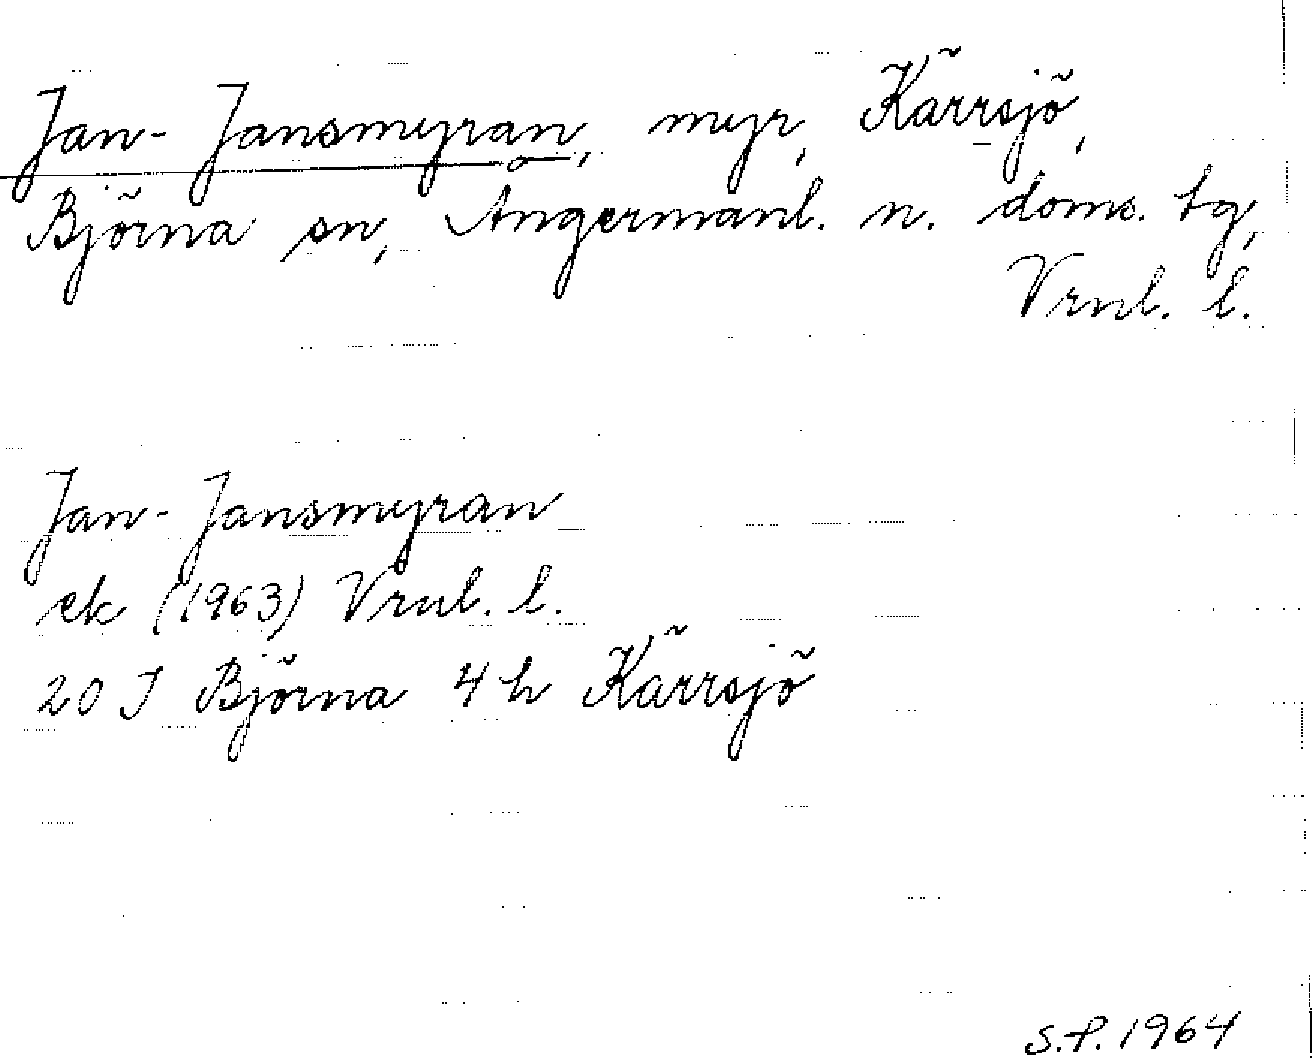 Jan-Jansmyran, myr, Kärrsjö,
Björna sn, Ångermanl. n. doms. tg,
Vrnl. l.
Jan-Jansmyran
ek (1963) Vrnl. l.
20 J Björna 4h Kärrsjö
S.P. 1964